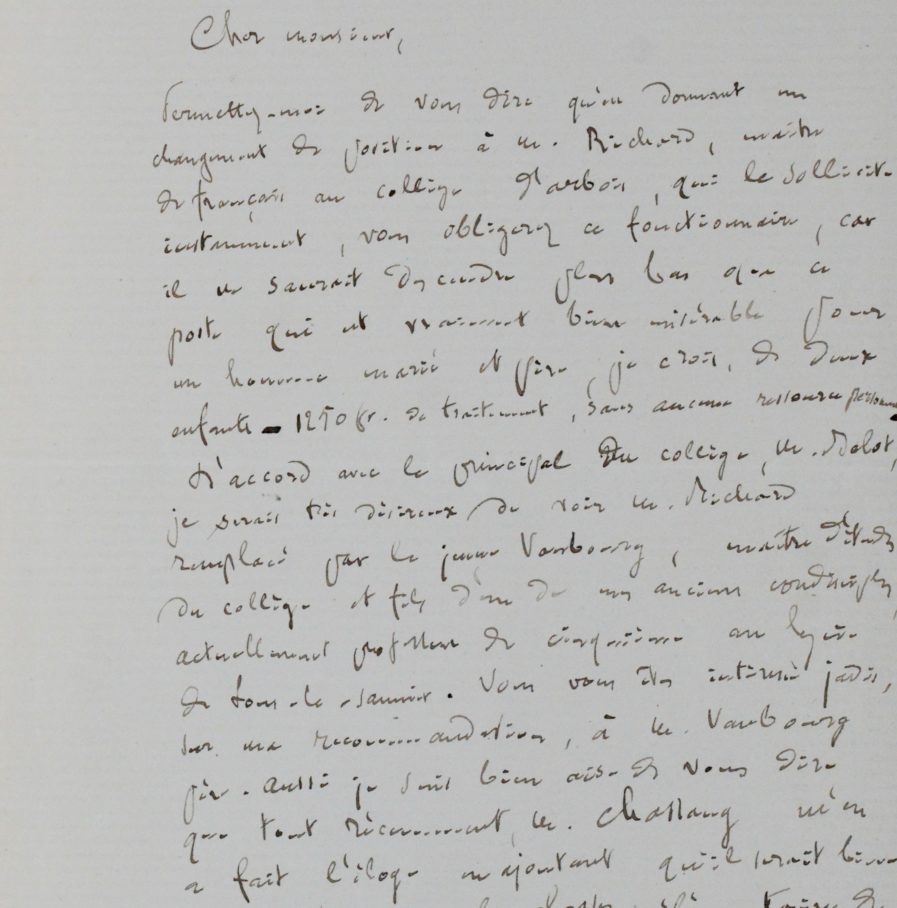 Cher monsieur,
Permettez-moi de vous dire qu'en donnant un
changement de position à M. Richard, maître
de français au collège d'Arbois, qui le sollicite
instamment, vous obligerez ce fonctionnaire, car
il ne saurait descendre plus bas que ce
poste qui est vraiment bien misérable pour
un homme marié et père, je crois, de deux
enfants - 1250 fr. de traitement, sans aucune ressource personnelle
D'accord avec le principal du collège, M.
je serais très désireux de voir M. Richard
remplacé par le jeune Varbourg, maître d'études
du collège et fils d'un de mes anciens condisciples,
actuellement professeur de cinquième au lycée
de Lons-le-saunier. Vous vous êtes intéressé jadis,
sur ma recommandation, à M. Varbourg
père. Aussi je suis bien aise de vous dire
que tout récemment, M. Chassang m'en
a fait l'éloge en ajoutant qu'il serait bien